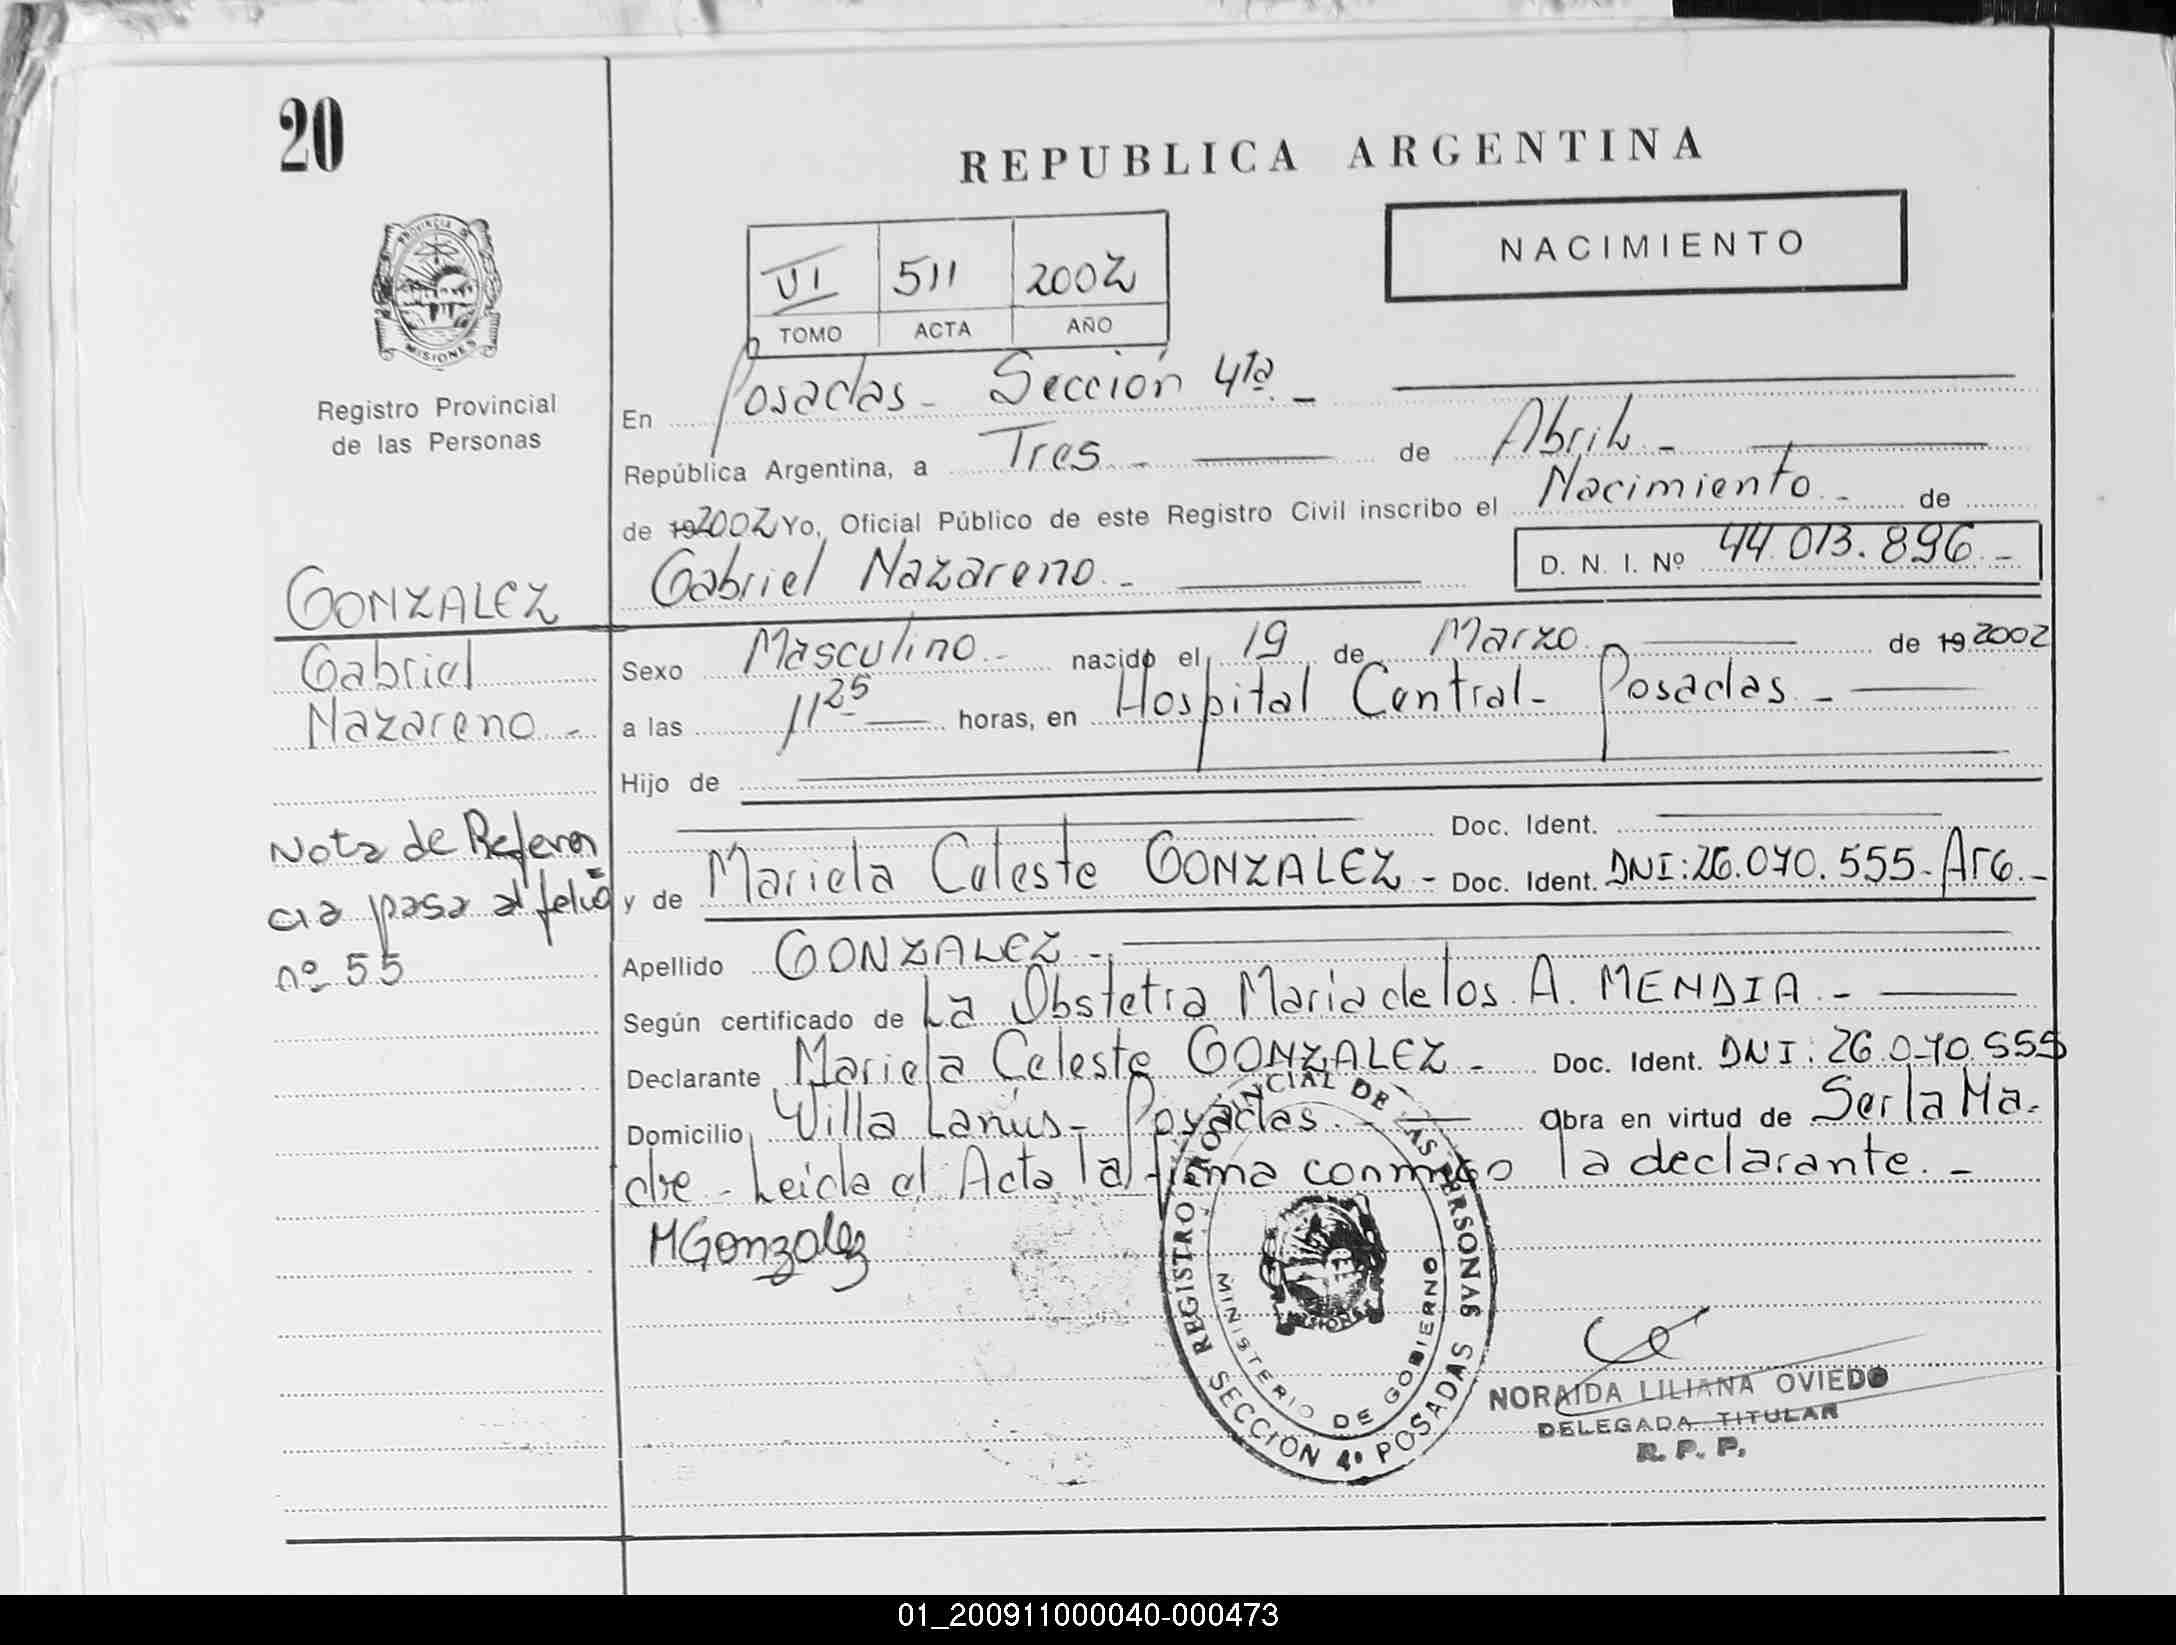 20
REPUBLICA ARGENTINA
NACIMIENTO
VI 511 2002
TOMO ACTA AÑO
PROVINCIA DE
MISIONES
Registro Provincial
de las Personas
En Posadas - Sección 4ta. -
República Argentina, a Tres. - de Abril. -
de 19 2002 Yo, Oficial Público de este Registro Civil inscribo el Nacimiento. - de
Gabriel Nazareno. - D. N. I. Nº 44.013.896. -
GONZALEZ
Gabriel
Nazareno. -
Sexo Masculino. - nacido el 19 de Marzo. de 19 2002
a las 11 25 horas, en Hospital Central - Posadas. -
Hijo de
Doc. Ident.
y de Mariela Celeste GONZALEZ - Doc. Ident. DNI: 26.070.555 - Arg. -
Nota de Referen
cia pasa al folio
nº 55
Apellido GONZALEZ. -
Según certificado de La Obstetra Maria de los A. MENDIA. -
Declarante Mariela Celeste GONZALEZ - Doc. Ident. DNI: 26.070.555
Domicilio Villa Lanús - Posadas. - Obra en virtud de Ser la Ma-
dre - Leida el Acta la firma conmigo la declarante. -
MGonzalez
REGISTRO PROVINCIAL DE LAS PERSONAS
MINISTERIO DE GOBIERNO
SECCION 4º POSADAS
NORAIDA LILIANA OVIEDO
DELEGADA TITULAR
R. P. P.
01_200911000040-000473